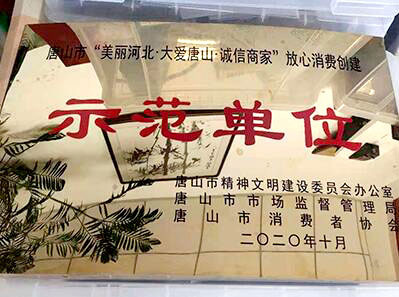 唐山市“美丽河北·大爱唐山·诚信商家”放心消费创建
示范单位
唐山市精神文明建设委员会办公室
唐山市市场监督管理局
唐山市消费者协会
二〇二〇年十月